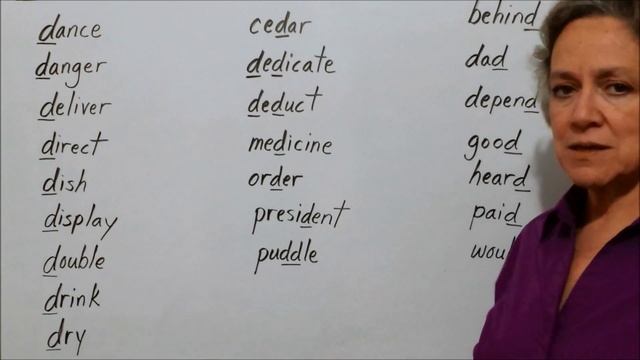 dance
danger
deliver
direct
dish
display
double
drink
dry
cedar
dedicate
deduct
medicine
order
president
puddle
behind
dad
depend
good
heard
paid